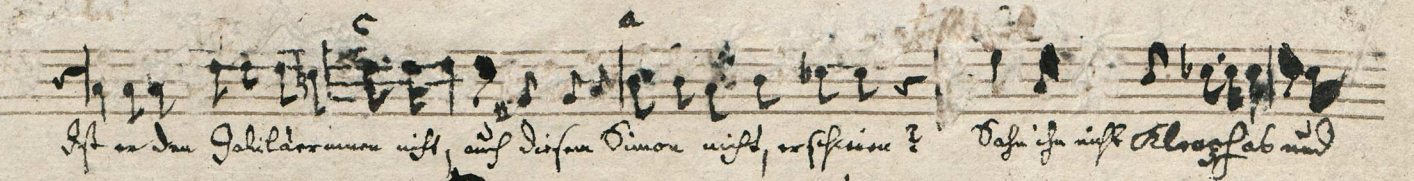 c a
Ist er den Galiläerinnen nicht, auch diesem Simon nicht, erschienen? Sahn ihn nicht Kleophas und